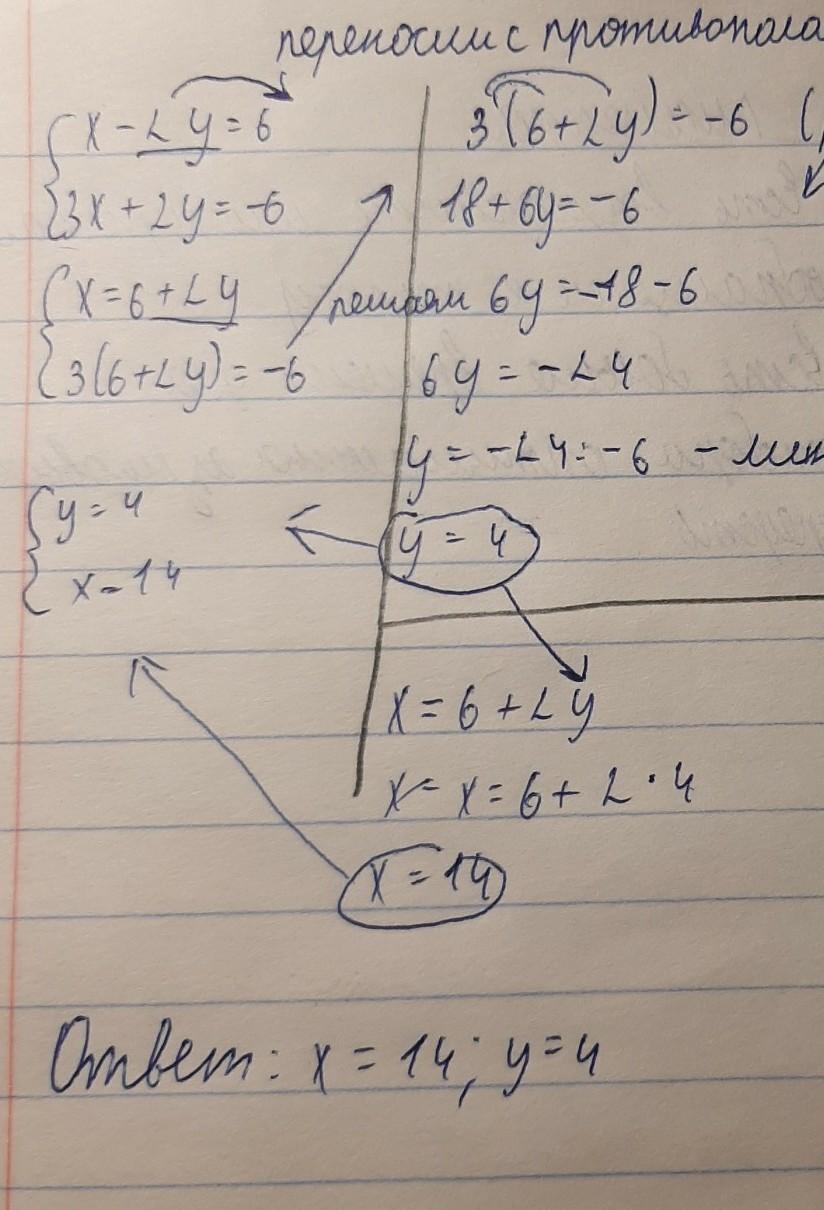 переносим с противопола
x - 2y = 6
3x + 2y = -6
x = 6 + 2y
3(6+2y) = -6
y = 4
x = 14
3(6+2y) = -6 (
18 + 6y = -6
решаем 6y = -18 - 6
6y = -24
y = -24 : -6 - мин
y = 4
x = 6 + 2y
x = x = 6 + 2 · 4
x = 14
Ответ: x = 14; y = 4